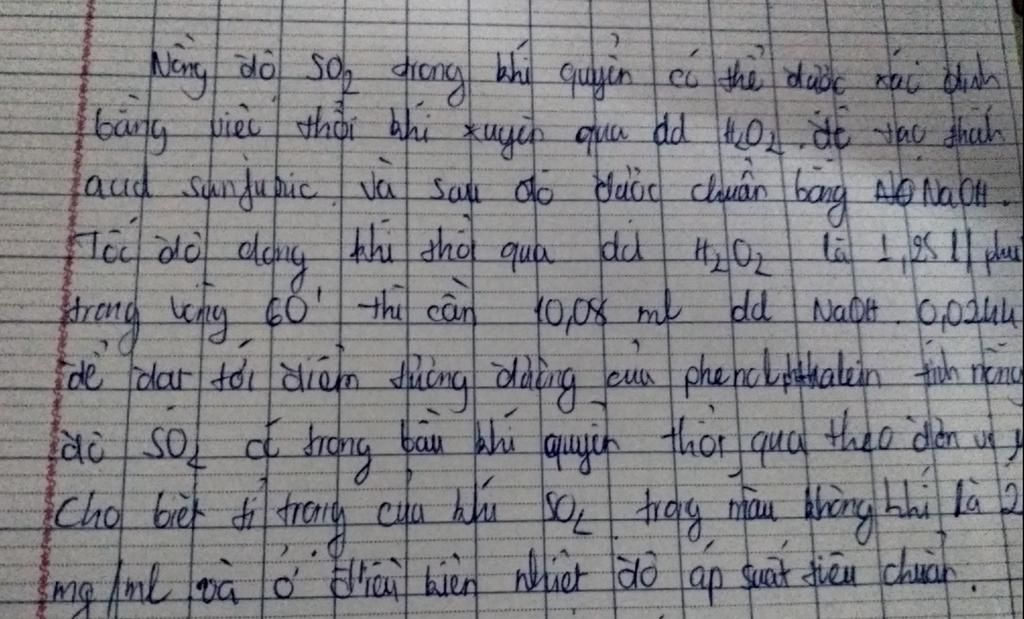 Nồng độ SO2 trong khí quyển có thể được xác định
bằng việc thổi khí xuyên qua dd H2O2 để tạo thành
acid sunfuric và sau đó được chuẩn bằng NaOH.
Tốc độ dòng khí thổi qua dd H2O2 là 1,25 l/phút
trong vòng 60' thì cần 10,08 ml dd NaOH 0,0244
để đạt tới điểm tương đương của phenolphthalein tính nồng
độ SO2 có trong bầu khí quyển thổi qua theo đơn vị
Cho biết tỉ trọng của khí SO2 trong mẫu không khí là 2
mg/ml và ở điều kiện nhiệt độ áp suất tiêu chuẩn.